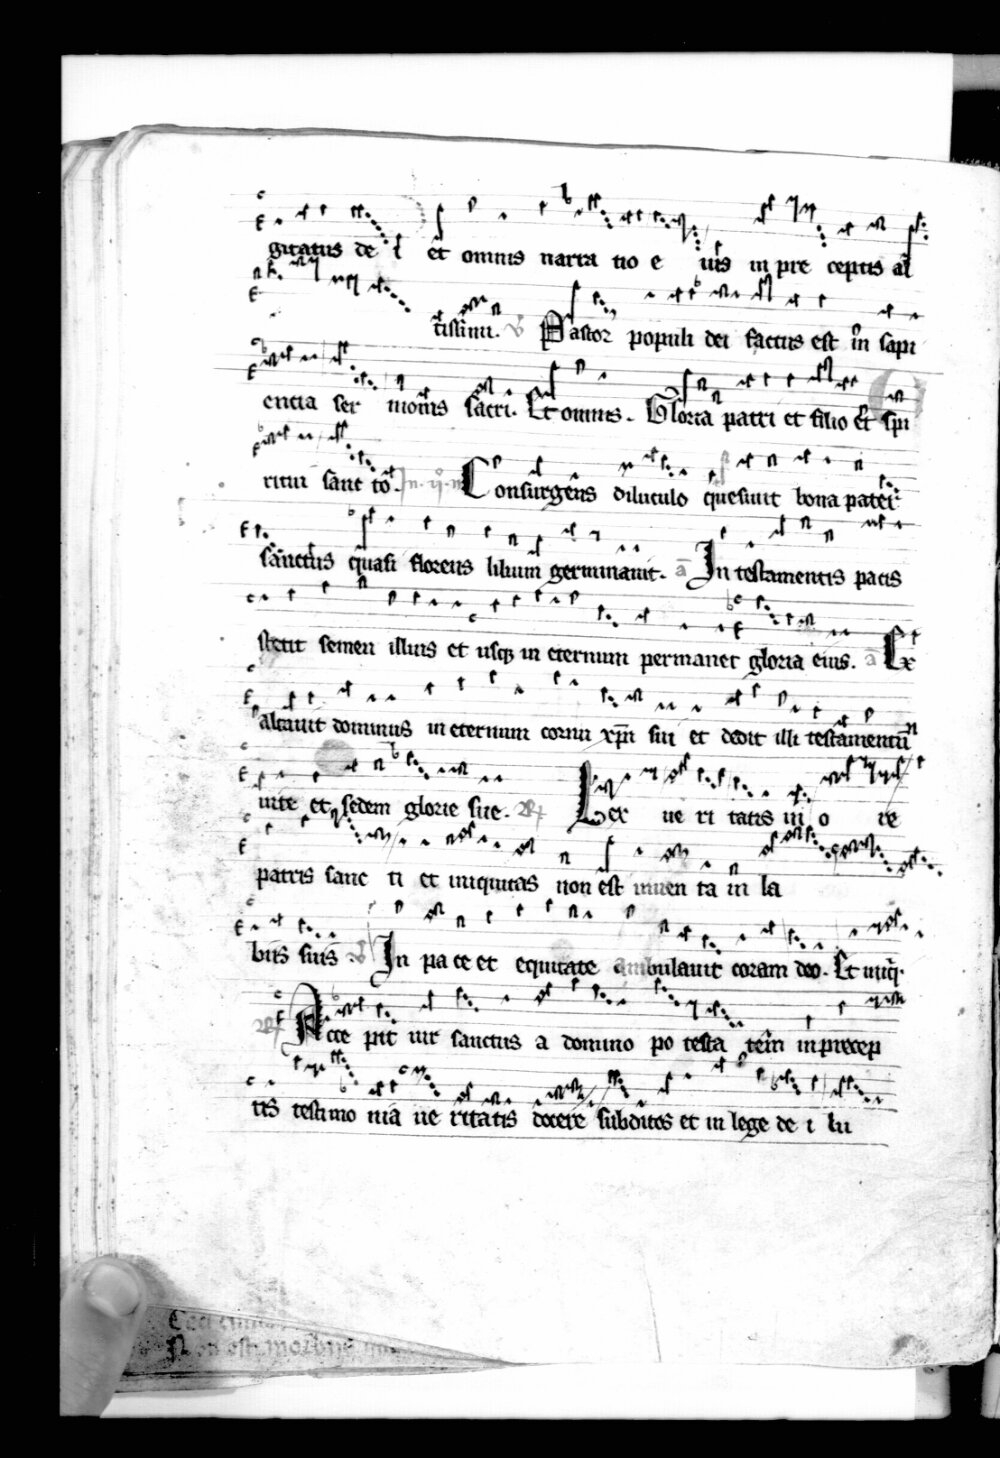 gitatus de i et omnis narra tio e ius in pre ceptis al
tissimi. V Pastor populi dei factus est in sapi
encia ser monis sacri. Et omnis. Gloria patri et filio et spi
ritui sanc to. In .ij. n Consurgens diluculo quesiuit bona pater
sanctus quasi florens lilium germinauit. a In testamentis pacis
stetit semen illius et usq in eternum permanet gloria eius. a Ex
altauit dominus in eternum cornu xpi sui et dedit illi testamentum
uite et sedem glorie sue. R Lex ue ri tatis in o re
patris sanc ti et iniquitas non est inuen ta in la
biis suis V In pa ce et equitate ambulauit coram deo. Et iniq.
R Acce pit uir sanctus a domino po testa tem in precep
tis testimo nia ue ritatis docere subditos et in lege de i lu